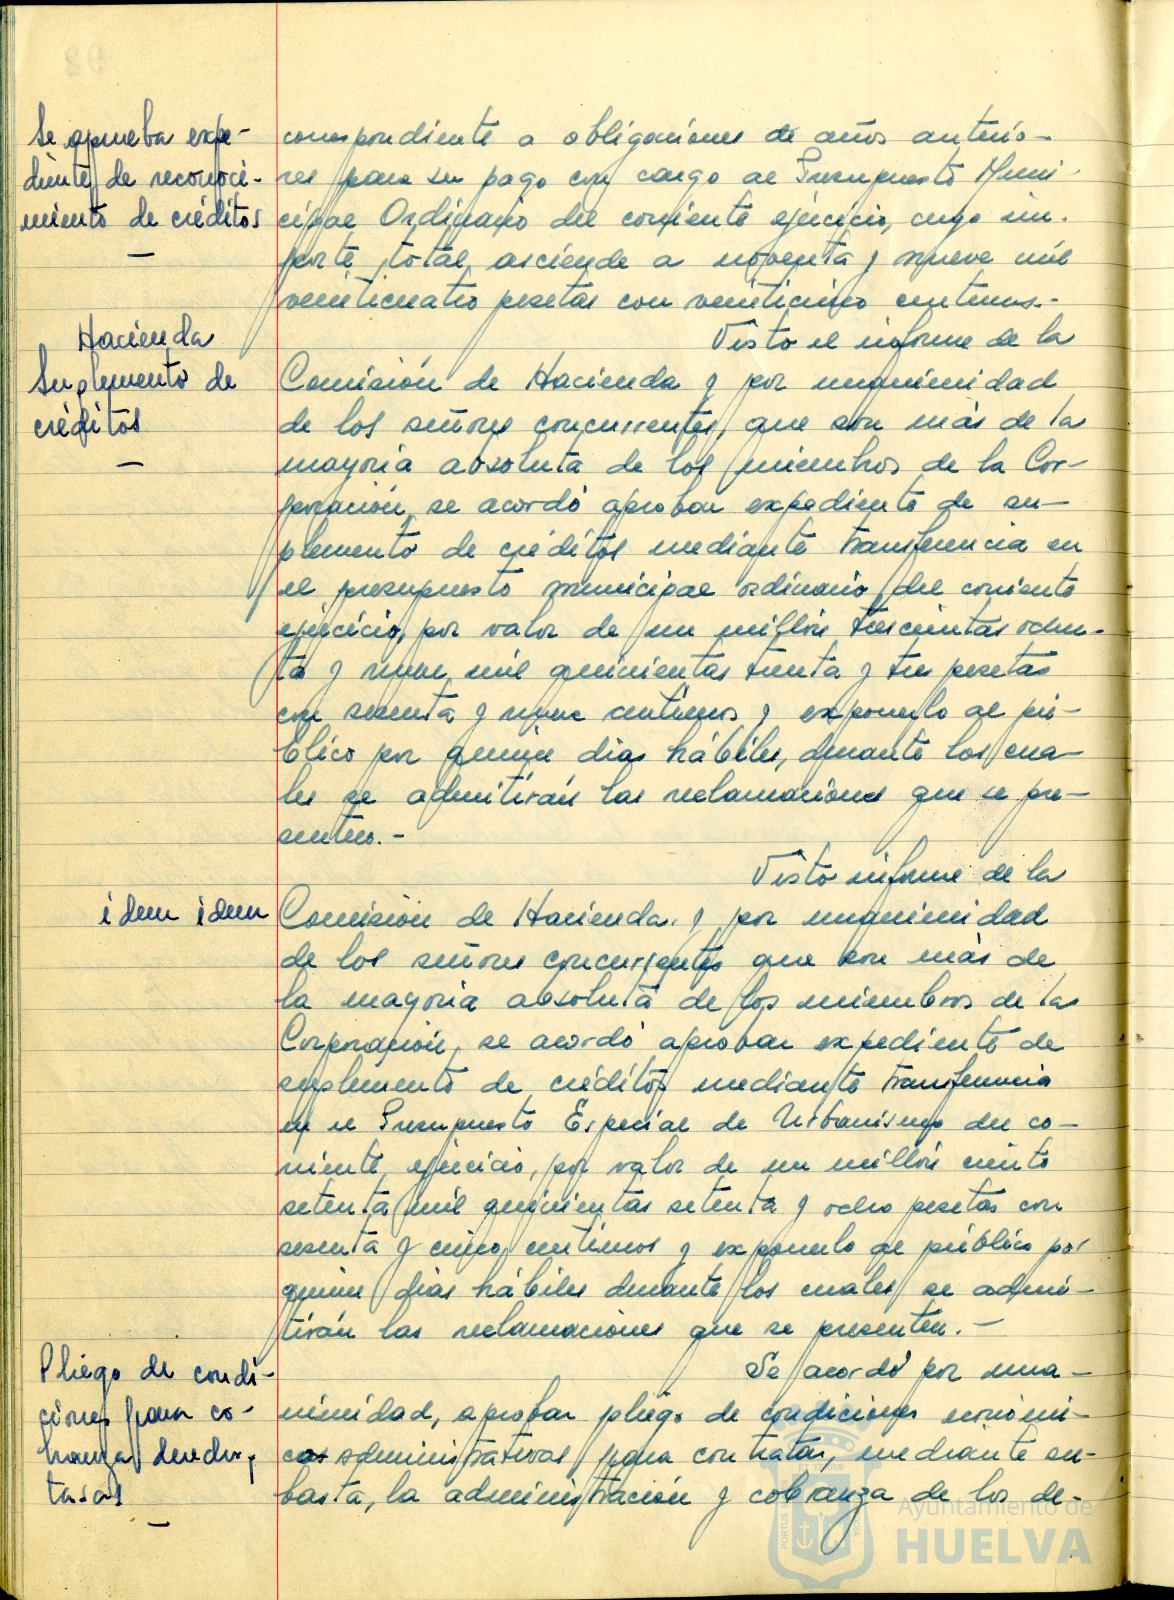 Se aprueba expe-
diente de reconoci-
miento de créditos
—
correspondiente a obligaciones de años anterio-
res para su pago con cargo al Presupuesto Muni-
cipal Ordinario del corriente ejercicio, cuyo im-
porte total asciende a noventa y nueve mil
veinticuatro pesetas con veinticinco céntimos.-
Hacienda
Suplemento de
créditos
—
Visto el informe de la
Comisión de Hacienda y por unanimidad
de los señores concurrentes, que son más de la
mayoria absoluta de los miembros de la Cor-
poración, se acordó aprobar expediente de su-
plemento de créditos mediante transferencia en
el presupuesto municipal ordinario del corriente
ejercicio, por valor de un millón trescientas ochen-
ta y nueve mil quinientas treinta y tres pesetas
con sesenta y nueve centimos y exponerlo al pú-
blico por quince dias hábiles, durante los cua-
les se admitirán las reclamaciones que se pre-
senten.-
idem idem
Visto informe de la
Comisión de Hacienda y por unanimidad
de los señores concurrentes que son más de
la mayoria absoluta de los miembros de la
Corporación, se acordó aprobar expediente de
suplemento de créditos mediante transferencia
en el Presupuesto Especial de Urbanismo del co-
rriente ejercicio, por valor de un millón ciento
setenta mil quinientas setenta y ocho pesetas con
sesenta y cinco centimos y exponerlo al público por
quince dias hábiles durante los cuales se admi-
tirán las reclamaciones que se presenten.-
Pliego de condi-
ciones para co-
branza
tasas
—
Se acordó por una-
nimidad, aprobar pliego de condiciones económi-
cas administrativas para contratar, mediante su-
basta, la administración y cobranza de los de-
Ayuntamiento de
HUELVA